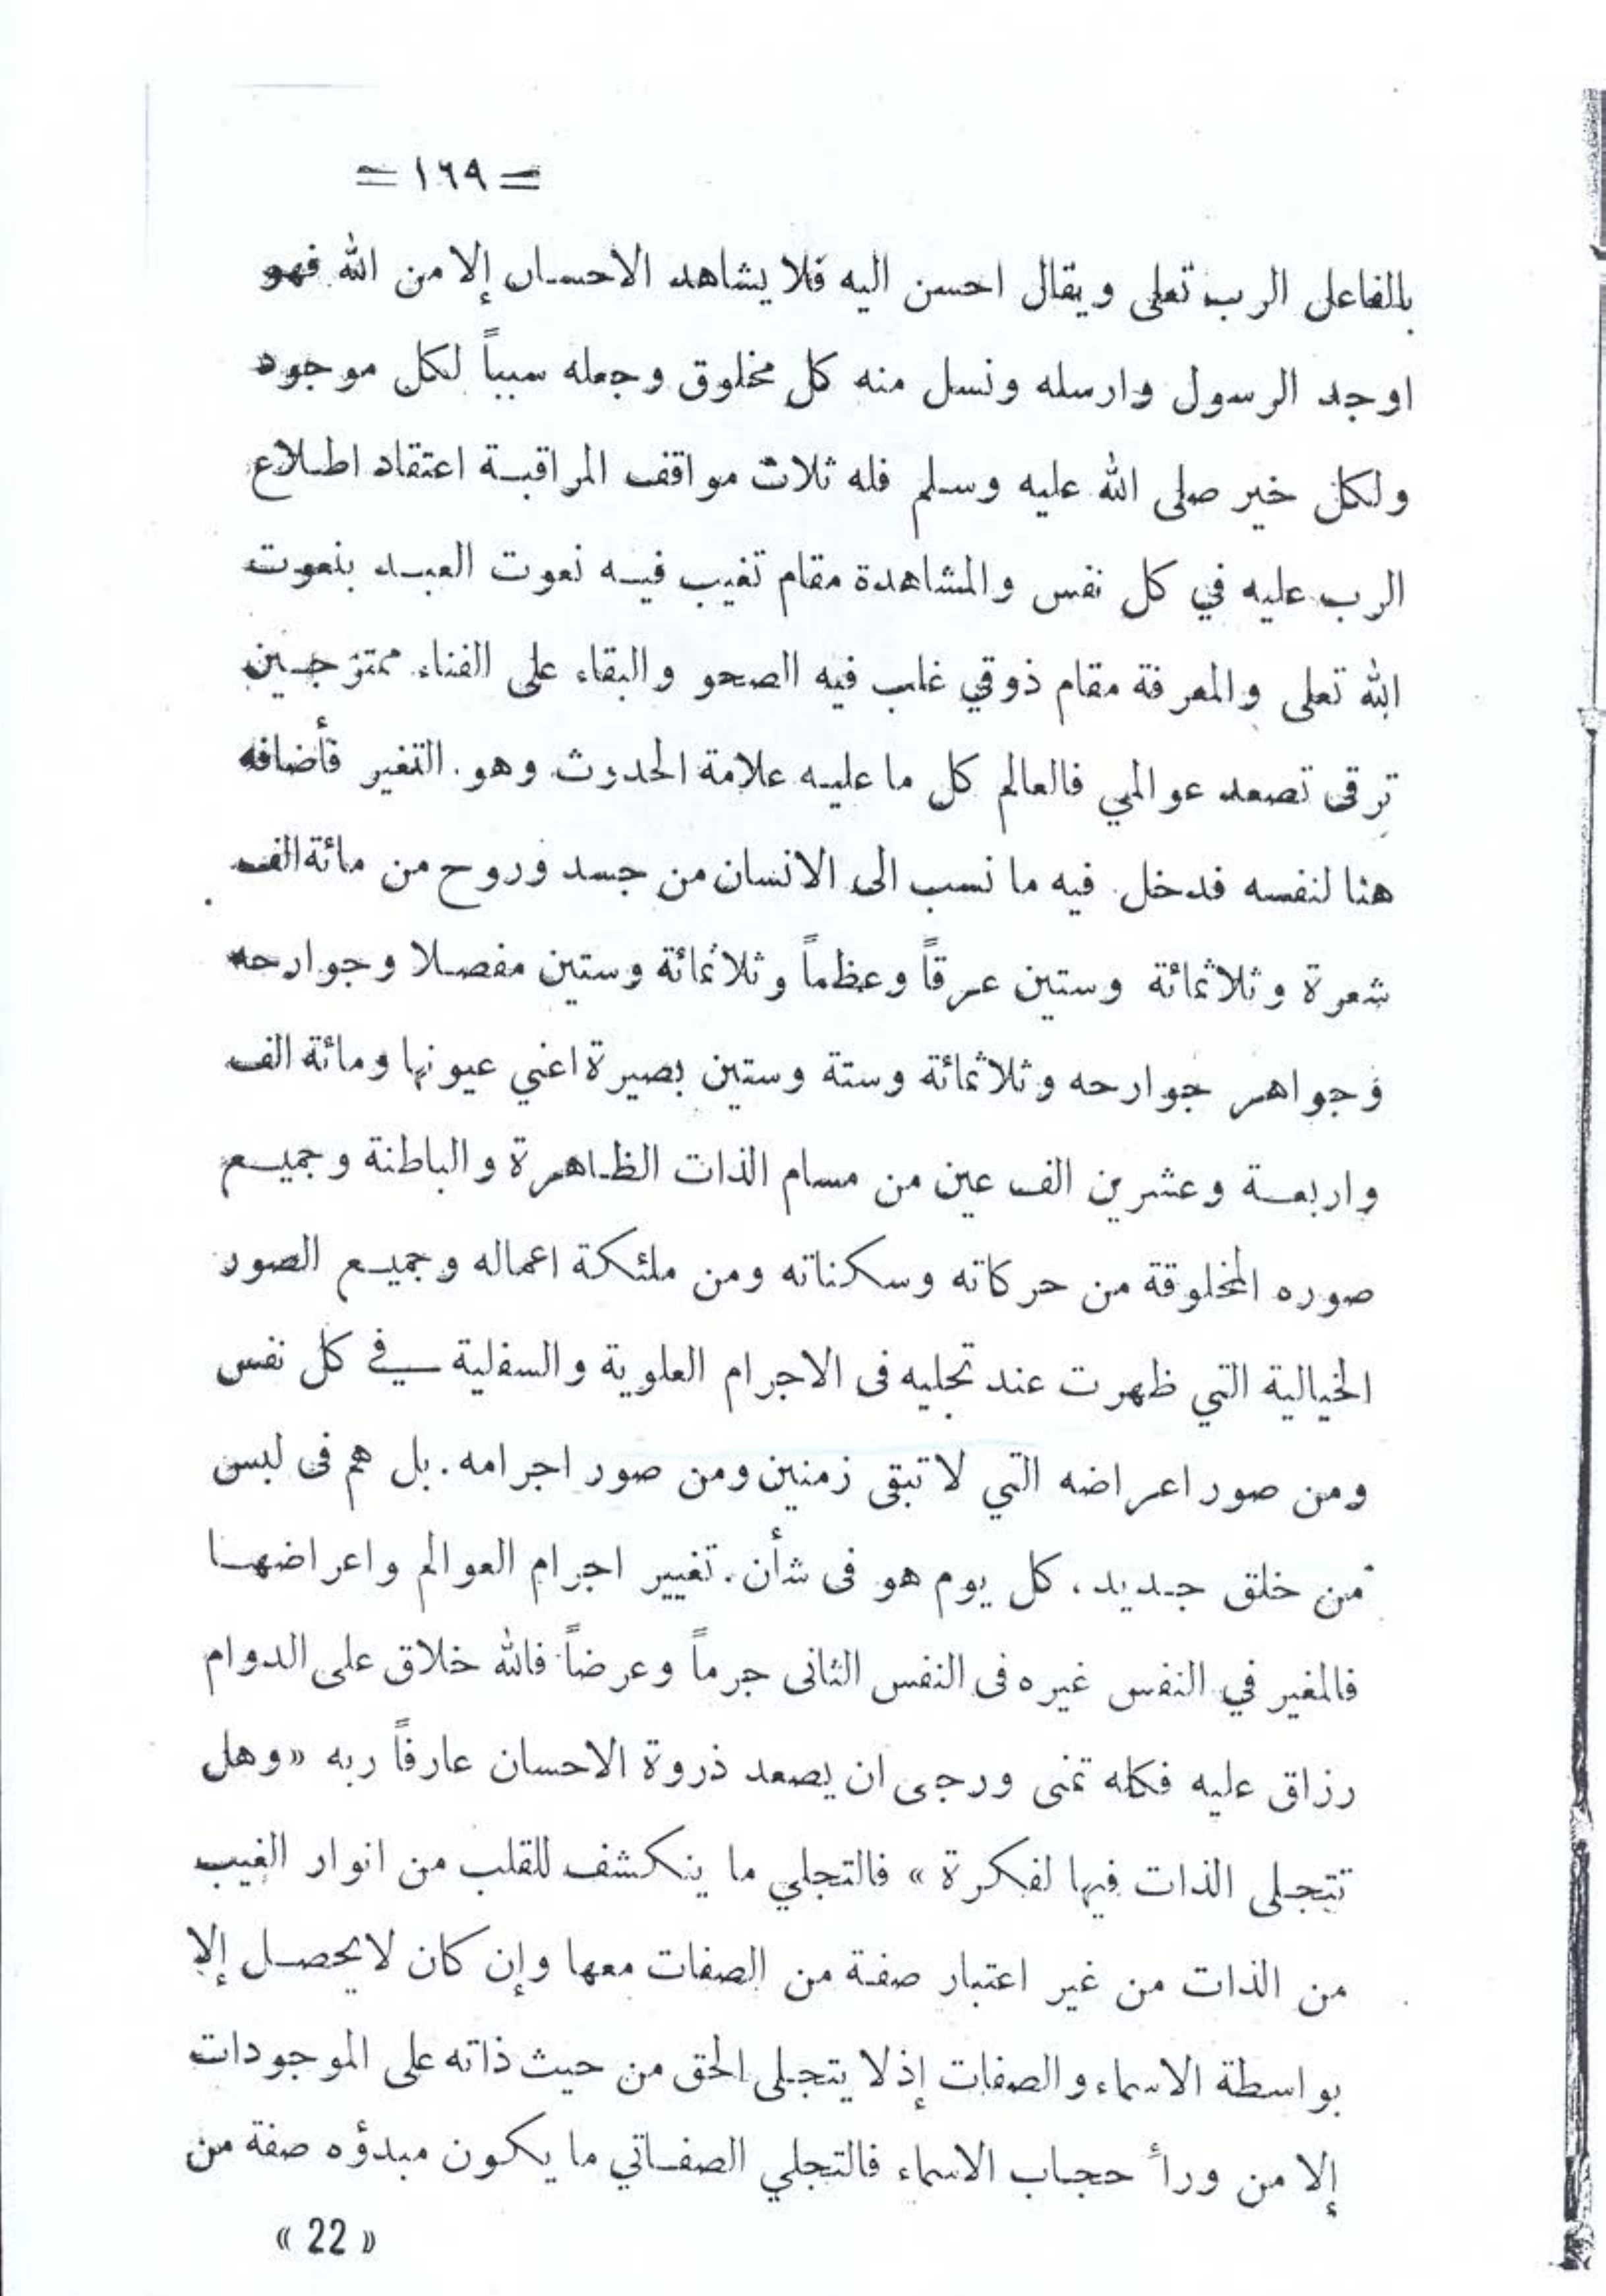 = ١٦٩ =
بالفاعل الرب تعلى ويقال احسن اليه فلا يشاهد الاحسان إلا من الله فهو
اوجد الرسول وارسله ونسل منه كل مخلوق وجعله سبباً لكل موجود
ولكل خير صلى الله عليه وسلم فله ثلاث مواقف المراقبة اعتقاد اطلاع
الرب عليه في كل نفس والمشاهدة مقام تغيب فيه نعوت العبد بنعوت
الله تعلى والمعرفة مقام ذوقي غلب فيه الصحو والبقاء على الفناء ممتزجين
ترقى تصعد عوالمي فالعالم كل ما عليه علامة الحدوث وهو. التغير فأضافه
هنا لنفسه فدخل فيه ما نسب الى الانسان من جسد وروح من مائة الف
شعرة وثلاثمائة وستين عرقاً وعظماً وثلاثمائة وستين مفصلا وجوارحه
وجواهر جوارحه وثلاثمائة وستة وستين بصيرة اعني عيونها ومائة الف
واربعة وعشرين الف عين من مسام الذات الظاهرة والباطنة وجميع
صوره المخلوقة من حركاته وسكناته ومن ملئكة اعماله وجميع الصور
الخيالية التي ظهرت عند تجليه فى الاجرام العلوية والسفلية في كل نفس
ومن صور اعراضه التي لا تبقى زمنين ومن صور اجرامه. بل هم فى لبس
من خلق جديد، كل يوم هو فى شأن. تغيير اجرام العوالم واعراضها
فالمغير في النفس غيره فى النفس الثانى جرماً وعرضاً فالله خلاق على الدوام
رزاق عليه فكله تمنى ورجى ان يصعد ذروة الاحسان عارفاً ربه «وهل
تتجلى الذات فيها لفكرة» فالتجلي ما ينكشف للقلب من انوار الغيب
من الذات من غير اعتبار صفة من الصفات معها وإن كان لا يحصل إلا
بواسطة الاسماء والصفات إذ لا يتجلى الحق من حيث ذاته على الموجودات
إلا من ورأ حجاب الاسماء فالتجلي الصفاتي ما يكون مبدؤه صفة من
« 22 »